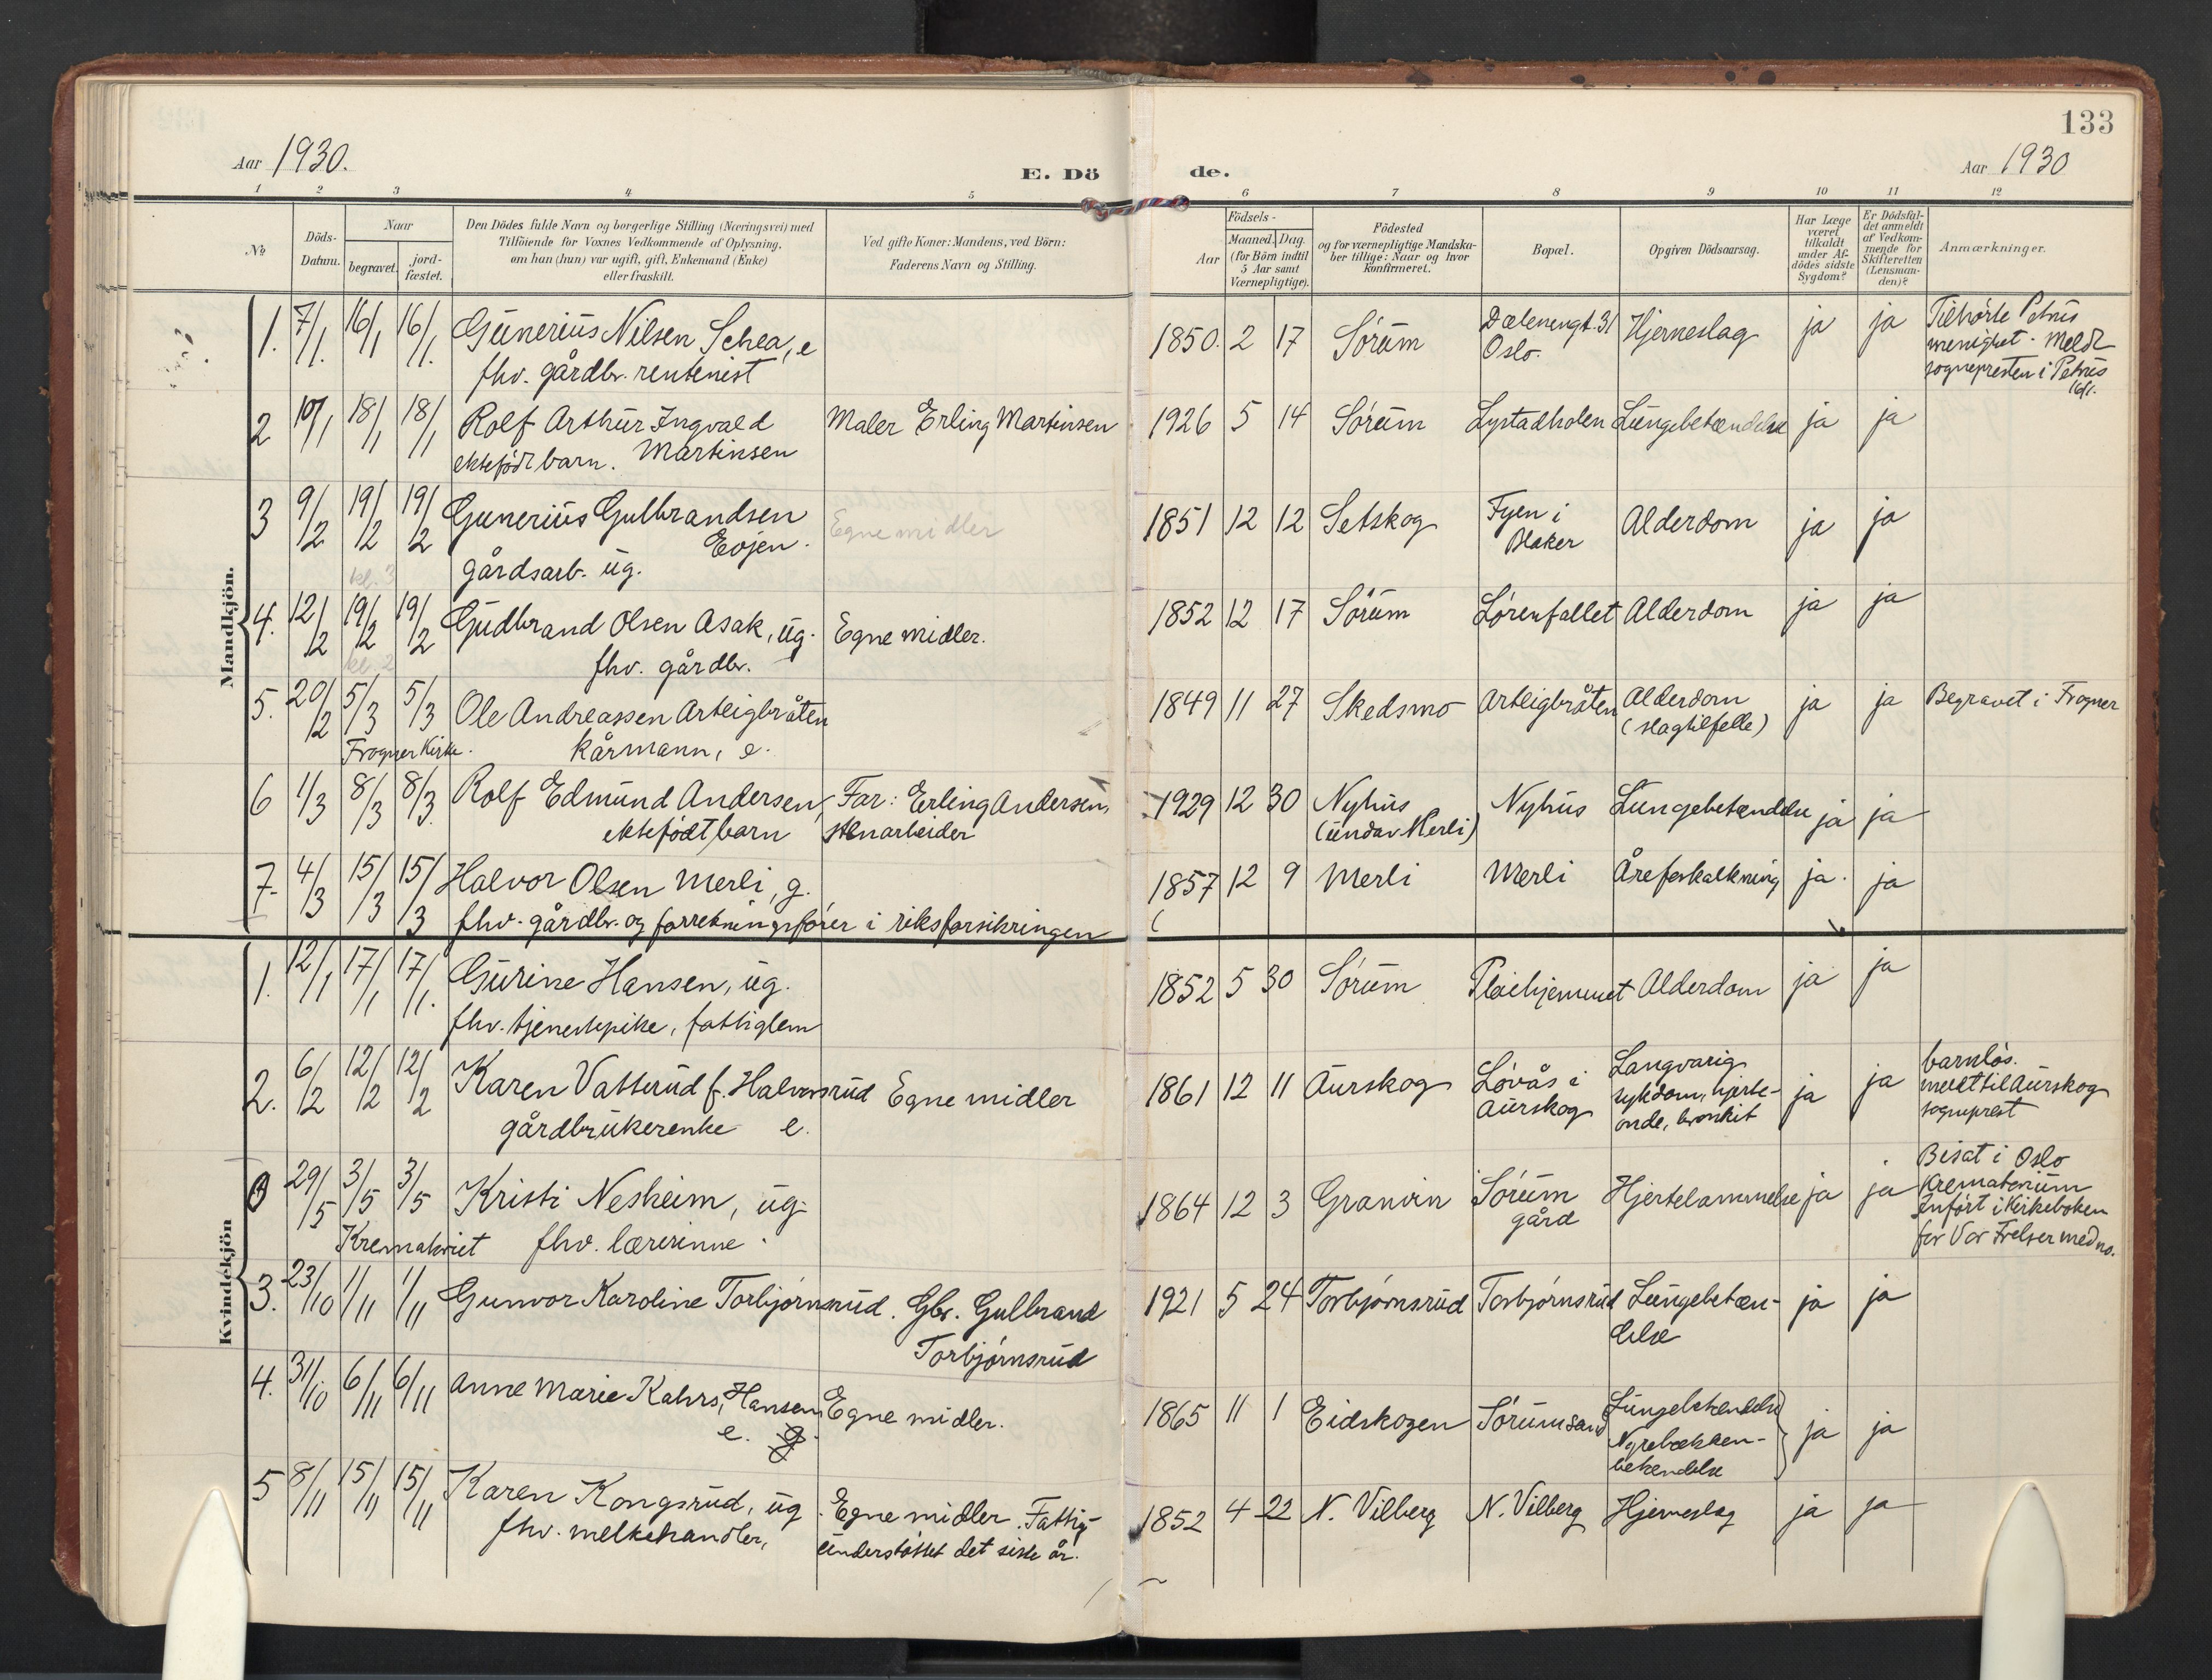 133
Aar 1930.
E. Dö
de.
Aar 1930
1 2 3 4 5 6 7 8 9 10 11 12
No.
Döds-Datum.
Naar
begravet.
jord-fæstet.
Den Dödes fulde Navn og borgerlige Stilling (Næringsvei) med
Tilföiende for Voxnes Vedkommende af Oplysning,
om han (hun) var ugift, gift, Enkemand (Enke)
eller fraskilt.
Ved gifte Koner: Mandens, ved Börn:
Faderens Navn og Stilling.
Födsels-
Aar
Maaned. Dag.
(for Börn indtil
5 Aar samt
Værnepligtige).
Födested
og for værnepligtige Mandska-
ber tillige: Naar og hvor
konfirmeret.
Bopæl.
Opgiven Dödsaarsag.
Har Læge
været
tilkaldt
under Af-
dödes sidste
Sygdom?
Er Dödsfal-
det anmeldt
af Vedkom-
mende for
Skifteretten
(Lensman-
den)?
Anmærkninger.
Mandkjön.
1. 7/1. 16/1 16/1. Gunerius Nilsen Schea, e
fhv. gårdbr. rentenist
1850. 2 17 Sørum Dælenengt. 31
Oslo. Hjerneslag ja ja Tilhørte Petrus
menighet. Meldt
sognepresten i Petrus
16/1.
2 10/1 18/1 18/1 Rolf Arthur Ingvald
Martinsen
ektefödt barn.
Maler Erling Martinsen 1926 5 14 Sørum Lystadholen Lungebetændelse ja ja
3 9/2 19/2 19/2 Gunerius Gulbrandsen
Evjen.
gårdsarb. ug.
Egne midler
1851 12 12 Setskog Fyen i
Blaker Alderdom ja ja
kl. 3
4. 12/2 19/2 19/2 Gudbrand Olsen Asak, ug.
fhv. gårdbr.
Egne midler.
1852 12 17 Sørum Lørenfallet Alderdom ja ja
kl. 2
5. 20/2 5/3 5/3 Ole Andreassen Arteigbråten
Frogner Kirke. kårmann, e.
1849 11 27 Skedsmo Arteigbråten Alderdom
(slagtilfelle) ja ja Begravet i Frogner
6 1/3 8/3 8/3. Rolf Edmund Andersen,
ektefødt barn
Far: Erling Andersen,
stenarbeider
1929 12 30 Nyhus
(undav Merli) Nyhus Lungebetendelse ja ja
7. 4/3 15/3 15/3 Halvor Olsen Merli, g.
fhv. gårdbr. og forretningsfører i riksforsikringen
1857 12 9 Merli Merli Åreforkalkning ja. ja
Kvindekjön
1. 12/1 17/1 17/1. Gurine Hansen, ug.
fhv. tjenestepike, fattiglem
1852 5 30 Sørum Pleiehjemmet Alderdom ja ja
2. 6/2 12/2 12/2 Karen Vatterud f. Halvorsrud
gårdbrukerenke e.
Egne midler
1861 12 11 Aurskog Løvås i
Aurskog Langvarig
sykdom, hjerte-
onde, bronkit ja ja barnløs.
meldt til Aurskog
sogneprest
29/5 3/5 3/5 Kristi Nesheim, ug.
Krematoriet fhv. lærerinne.
1864 12 3 Granvin Sørum
gård Hjertelammelse ja ja Bisat i Oslo
Krematorium
Innført i Kirkeboken
for Vor Frelser med no.
3. 23/10 1/11 1/11 Gunvor Karoline Torbjørnsrud. Gbr. Gulbrand
Torbjørnsrud
1921 5 24 Torbjørnsrud Torbjørnsrud Lungebetæn-
delse ja ja
4. 31/10 6/11 6/11 Anne Marie Kahrs, Hansen,
e. g.
Egne midler.
1865 11 1 Eidskogen Sørumsand Lungebetændelse
Nyrebekken-
betendelse ja ja
5 8/11 15/11 15/11 Karen Kongsrud, ug.
fhv. melkehandler,
Egne midler. Fattig-
understøttet det siste år.
1852 4 22 N. Vilberg N. Vilberg Hjerneslag ja ja